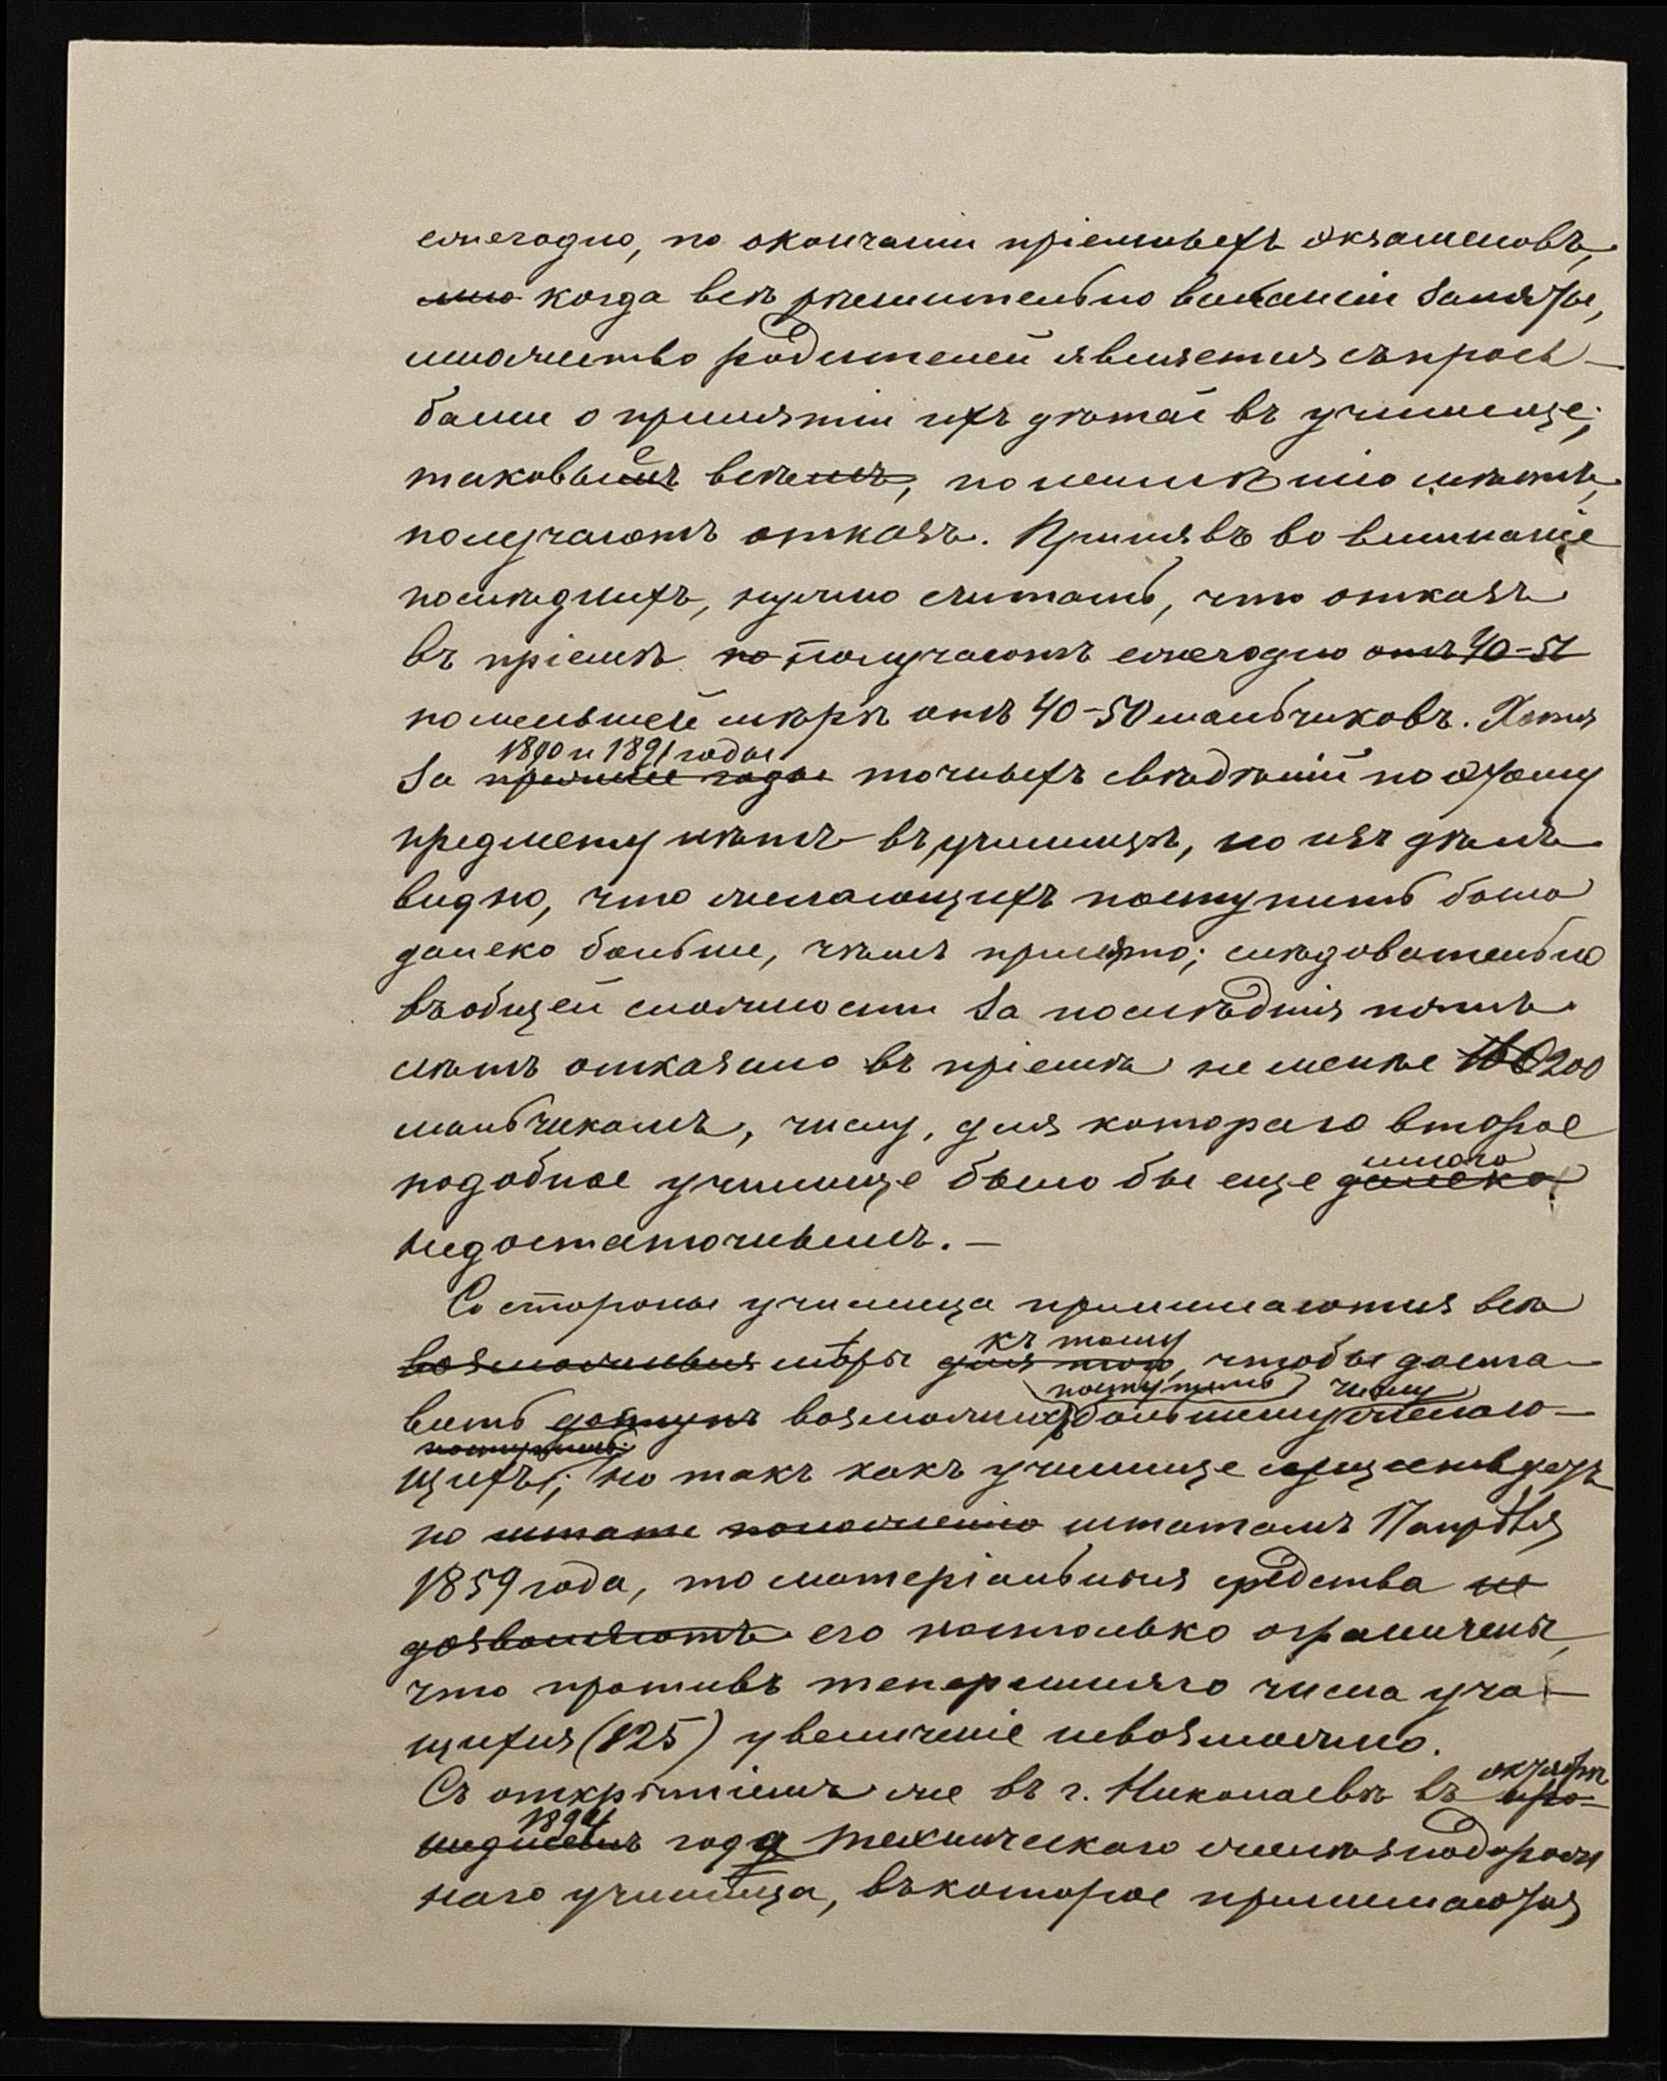 ежегодно, по окончаніи пріемныхъ экзаменовъ,
когда всѣ рѣшительно вакансіи заняты,
множество родителей является съ прось-
бами о принятіи ихъ дѣтей въ училище;
таковые всѣ, по неимѣнію мѣстъ,
получаютъ отказъ. Принявъ во вниманіе
послѣднихъ, нужно считать, что отказъ
въ пріемѣ по получаютъ ежегодно отъ 40-50
по меньшей мѣрѣ отъ 40-50 мальчиковъ. Хотя
1890 и 1891 годы
за прежніе годы точныхъ свѣдѣній по этому
предмету нѣтъ въ училищѣ, но изъ дѣлъ
видно, что желающихъ поступить было
далеко больше, чѣмъ принято; слѣдовательно
въ общей сложности за послѣднія пять
лѣтъ отказано въ пріемѣ не менѣе 200
мальчикамъ, числу, для котораго второе
много
подобное училище было бы еще далеко
недостаточнымъ. —
Со стороны училища принимаются всѣ
къ тому
возможныя мѣры для того, чтобы доста-
поступить числу
вить доступъ возможно большему желаю-
поступить
щихъ; но такъ какъ училище существуетъ
по штатамъ 17 апрѣля
1859 года, то матеріальныя средства не
дозволяютъ его настолько ограничены,
что противъ теперешняго числа уча-
щихся (125) увеличеніе невозможно.
октябрѣ
Съ открытіемъ же въ г. Николаевѣ въ про-
1894
года техническаго желѣзнодорож
наго училища, въ которое принимаются